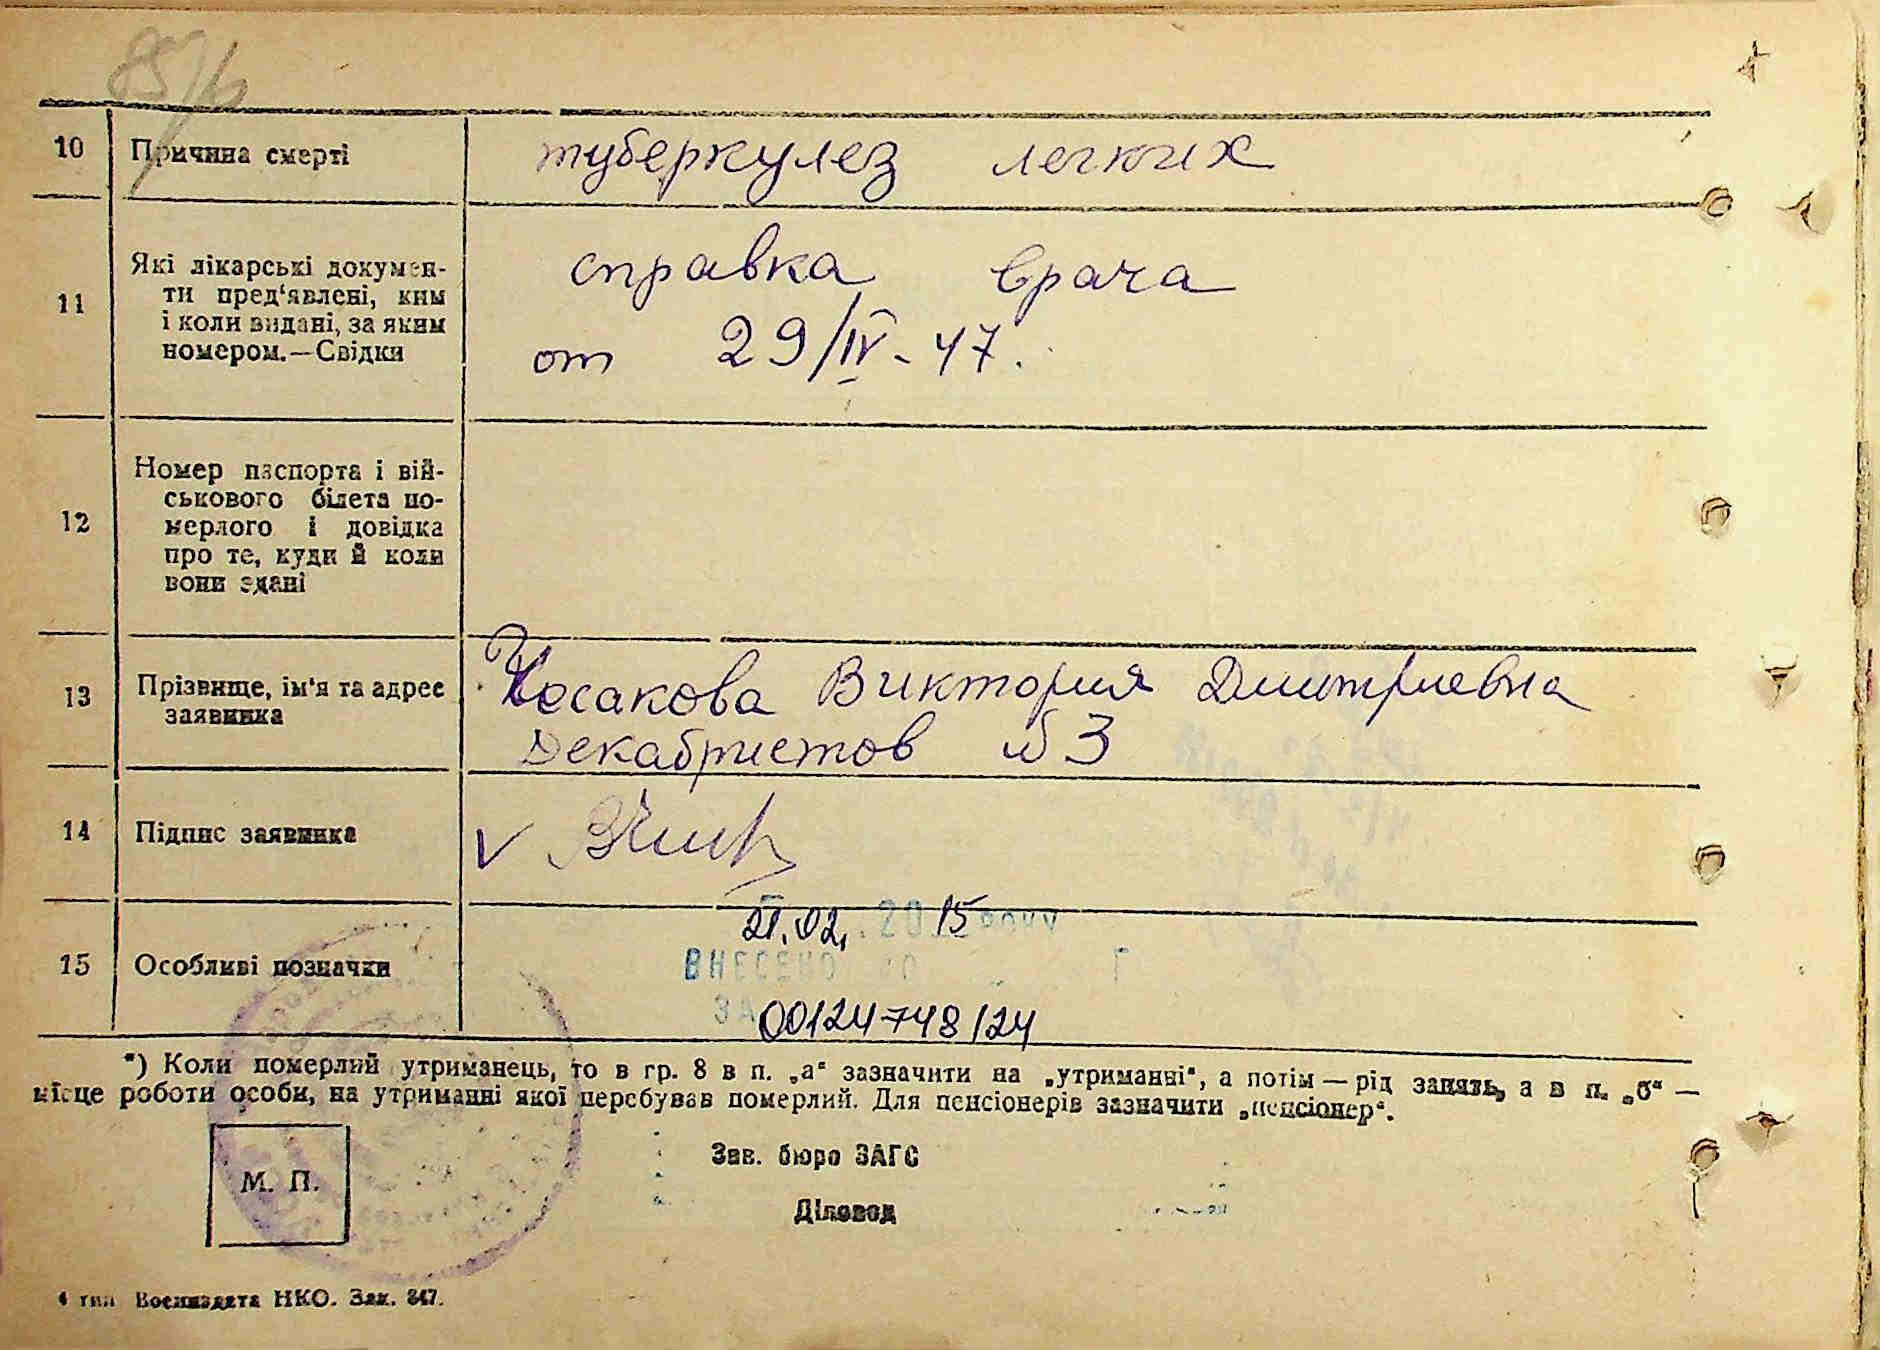 85/
10 Причина смерті туберкулез легких
11 Які лікарські докумен-
ти пред'явлені, ким
і коли видані, за яким
номером.—Свідки
справка врача
от 29/IV-47.
12 Номер паспорта і вій-
ськового білета по-
мерлого і довідка
про те, куди й коли
вони здані
13 Прізвище, ім'я та адрес
заявника
Виктория Дмитриевна
Декабристов №3
14 Підпис заявника V
15 Особливі позначки
21.02. 2015 року
ВНЕСЕНО ДО Г
ЗА 00124748/24
*) Коли померлий утриманець, то в гр. 8 в п. „а“ зазначити на „утриманні“, а потім — рід занять, а в п. „б“ —
місце роботи особи, на утриманні якої перебував померлий. Для пенсіонерів зазначити „пенсіонер“.
М. П.
Зав. бюро ЗАГС
Діловод
4 тип Воениздата НКО. Зак. 847.